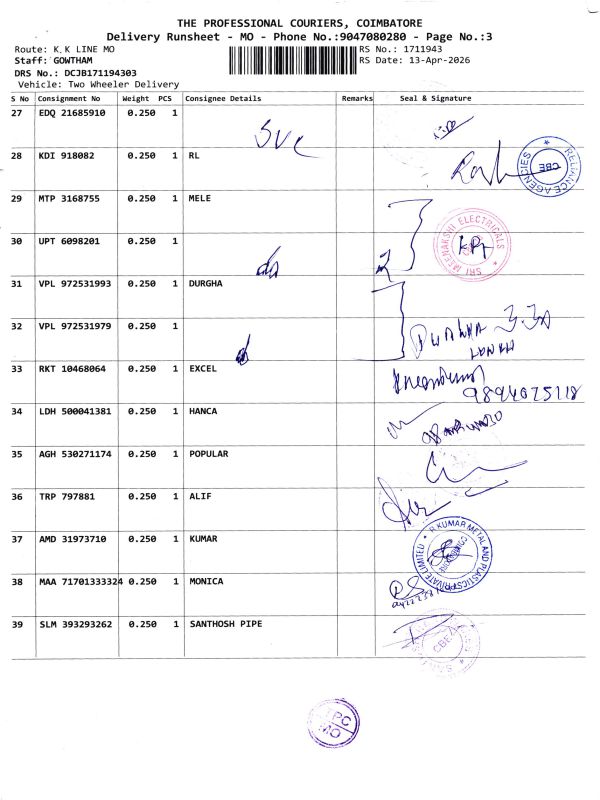 THE PROFESSIONAL COURIERS, COIMBATORE
Delivery Runsheet - MO - Phone No.:9047080280 - Page No.:3
Route: K.K LINE MO
RS No.: 1711943
Staff: GOWTHAM
RS Date: 13-Apr-2026
DRS No.: DCJB171194303
Vehicle: Two Wheeler Delivery
S No Consignment No Weight PCS Consignee Details Remarks Seal & Signature
27 EDQ 21685910 0.250 1
SVC
28 KDI 918082 0.250 1 RL
RELIANCE AGENCIES * CBE
29 MTP 3168755 0.250 1 MELE
SRI MEENAKSHI ELECTRICALS *
30 UPT 6098201 0.250 1
31 VPL 972531993 0.250 1 DURGHA
32 VPL 972531979 0.250 1
33 RKT 10468064 0.250 1 EXCEL
9894075118
34 LDH 500041381 0.250 1 HANCA
35 AGH 530271174 0.250 1 POPULAR
36 TRP 797881 0.250 1 ALIF
37 AMD 31973710 0.250 1 KUMAR
R KUMAR METAL AND PLASTICS PRIVATE LIMITED *
38 MAA 71701333324 0.250 1 MONICA
39 SLM 393293262 0.250 1 SANTHOSH PIPE
CBE
TPC
MO